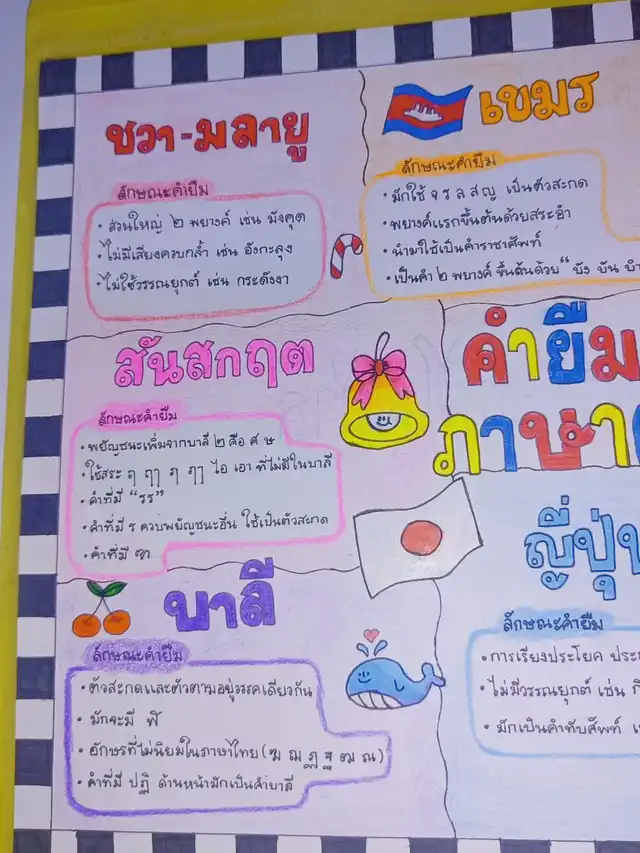 ชวา-มลายู
ลักษณะคำยืม
• ส่วนใหญ่ ๒ พยางค์ เช่น มังคุด
• ไม่มีเสียงควบกล้ำ เช่น อังกะลุง
• ไม่ใช้วรรณยุกต์ เช่น กระดังงา
เขมร
ลักษณะคำยืม
• มักใช้ จ ร ล ส ญ เป็นตัวสะกด
• พยางค์แรกขึ้นต้นด้วยสระอำ
• นำมาใช้เป็นคำราชาศัพท์
• เป็นคำ ๒ พยางค์ ขึ้นต้นด้วย "บัง บัน บำ
คำยืม
ภาษา
สันสกฤต
ลักษณะคำยืม
• พยัญชนะเพิ่มจากบาลี ๒ คือ ศ ษ
• ใช้สระ ฤ ฤๅ ฦ ฦๅ ไอ เอา ที่ไม่มีในบาลี
• คำที่มี "รร"
• คำที่มี ร ควบพยัญชนะอื่น ใช้เป็นตัวสะกด
• คำที่มี
บาลี
ลักษณะคำยืม
• ตัวสะกดและตัวตามอยู่วรรคเดียวกัน
• มักจะมี ฬ
• อักษรที่ไม่นิยมในภาษาไทย (ฆ ฌ ฏ ฐ ฒ ณ)
• คำที่มี ปฏิ ด้านหน้ามักเป็นคำบาลี
ญี่ปุ่
ลักษณะคำยืม
• การเรียงประโยค
• ไม่มีวรรณยุกต์ เช่น
• มักเป็นคำทับศัพท์